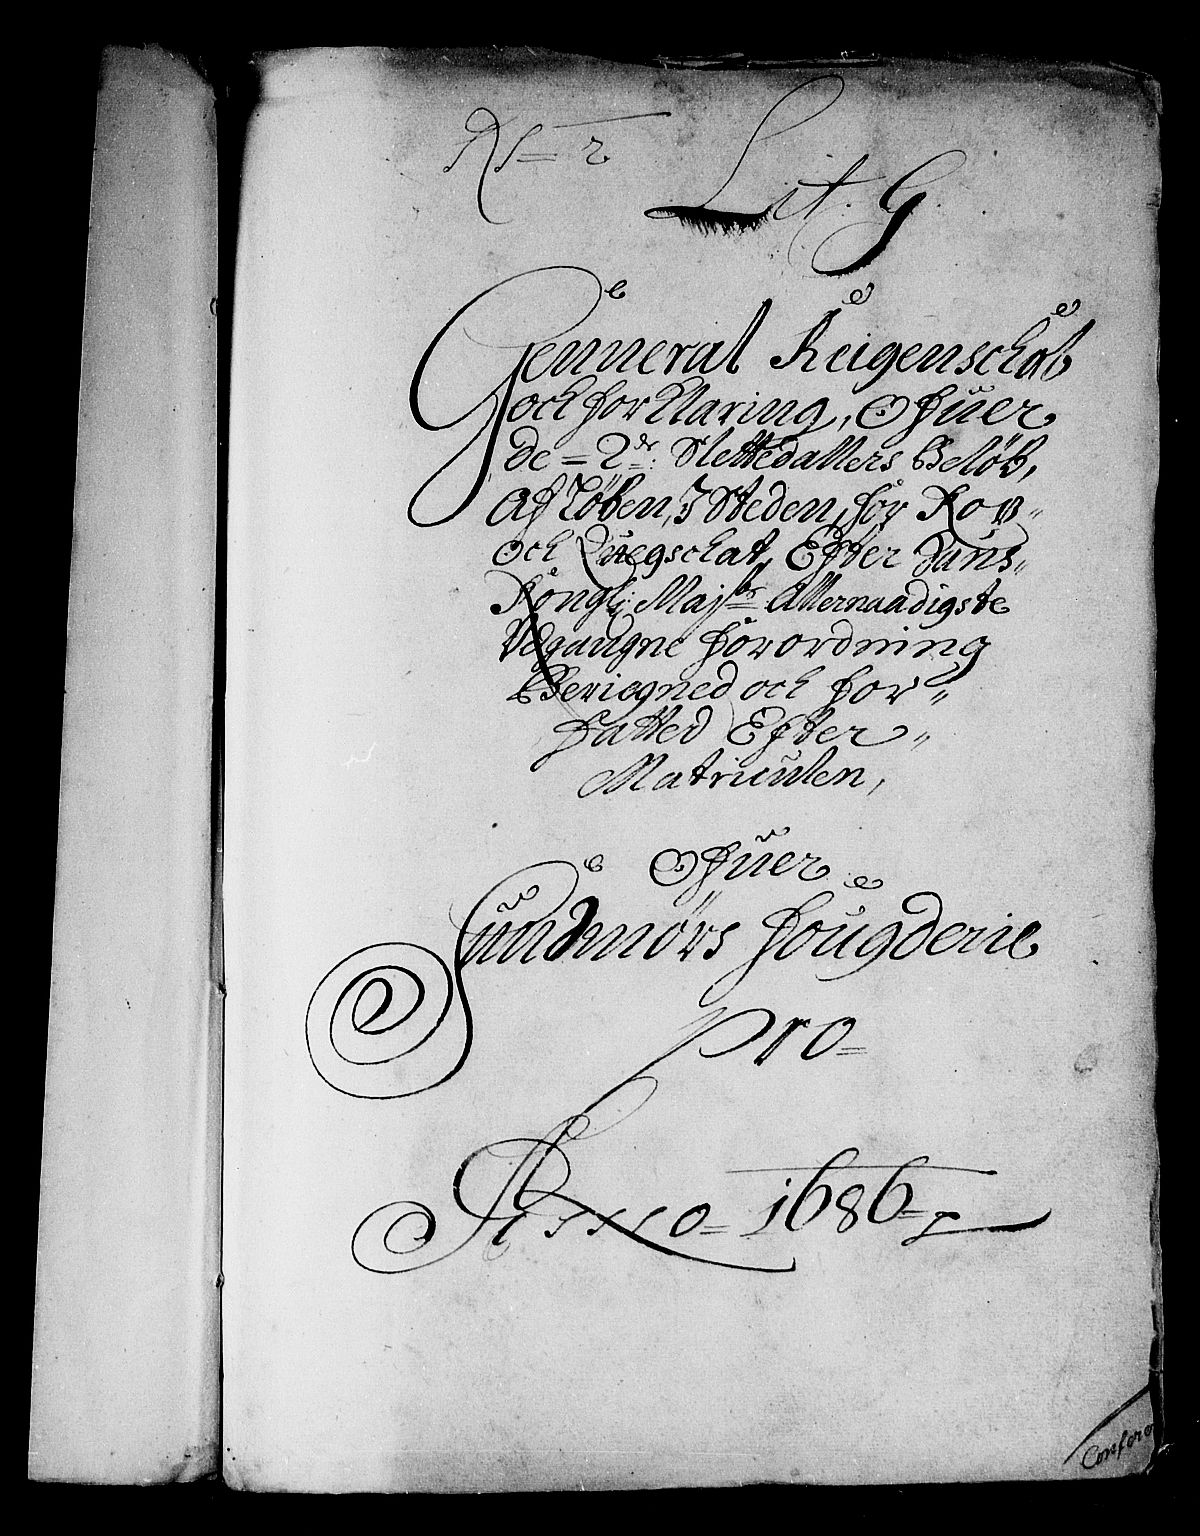 No 2
Lit. G.
Genneral Reigenschab
och forklaring, Ofuer
de = 2de: Slettedallers Beløb,
Af Køben, 3 Steden, for Kop
och Quegschat, Efter Hans
Kongl: Maj:ts Allernaadigste
Udgangne forordning
Beriegned och for
fatted Efter
Matriculen,
Ofuer
Sundmørs fougderie
pro
Anno 1686
Confero